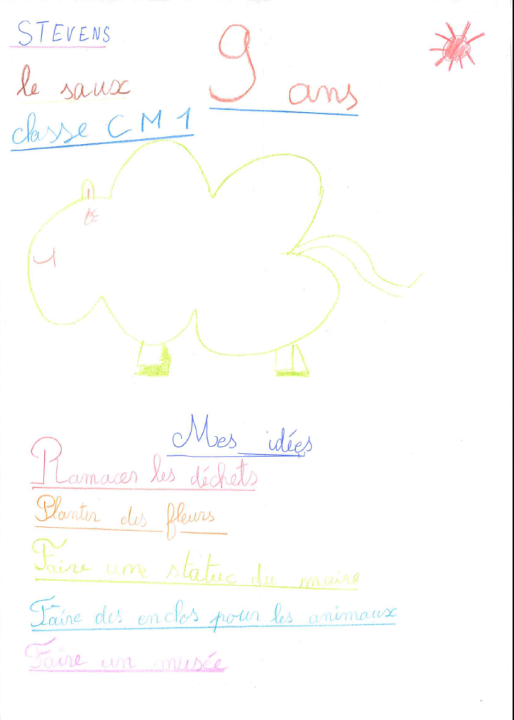 STEVENS
le saux
9 ans
classe CM1
Mes idées
Ramacer les déchets
Planter des fleurs
Faire une statue du maire
Faire des enclos pour les animaux
Faire un musée